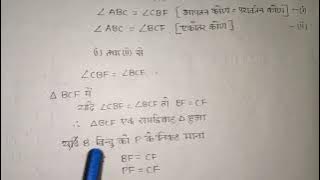 ∠ABC = ∠CBF [आपतन कोण = परावर्तन कोण] —(i)
∠ABC = ∠BCF [एकांतर कोण] —(ii)
(i) तथा (ii) से
∠CBF = ∠BCF
△ BCF में
यदि ∠CBF = ∠BCF तो BF = CF
∴ △BCF एक समद्विबाहु △ हुआ
यदि B बिन्दु को P के निकट माना
BF = CF
PF = CF